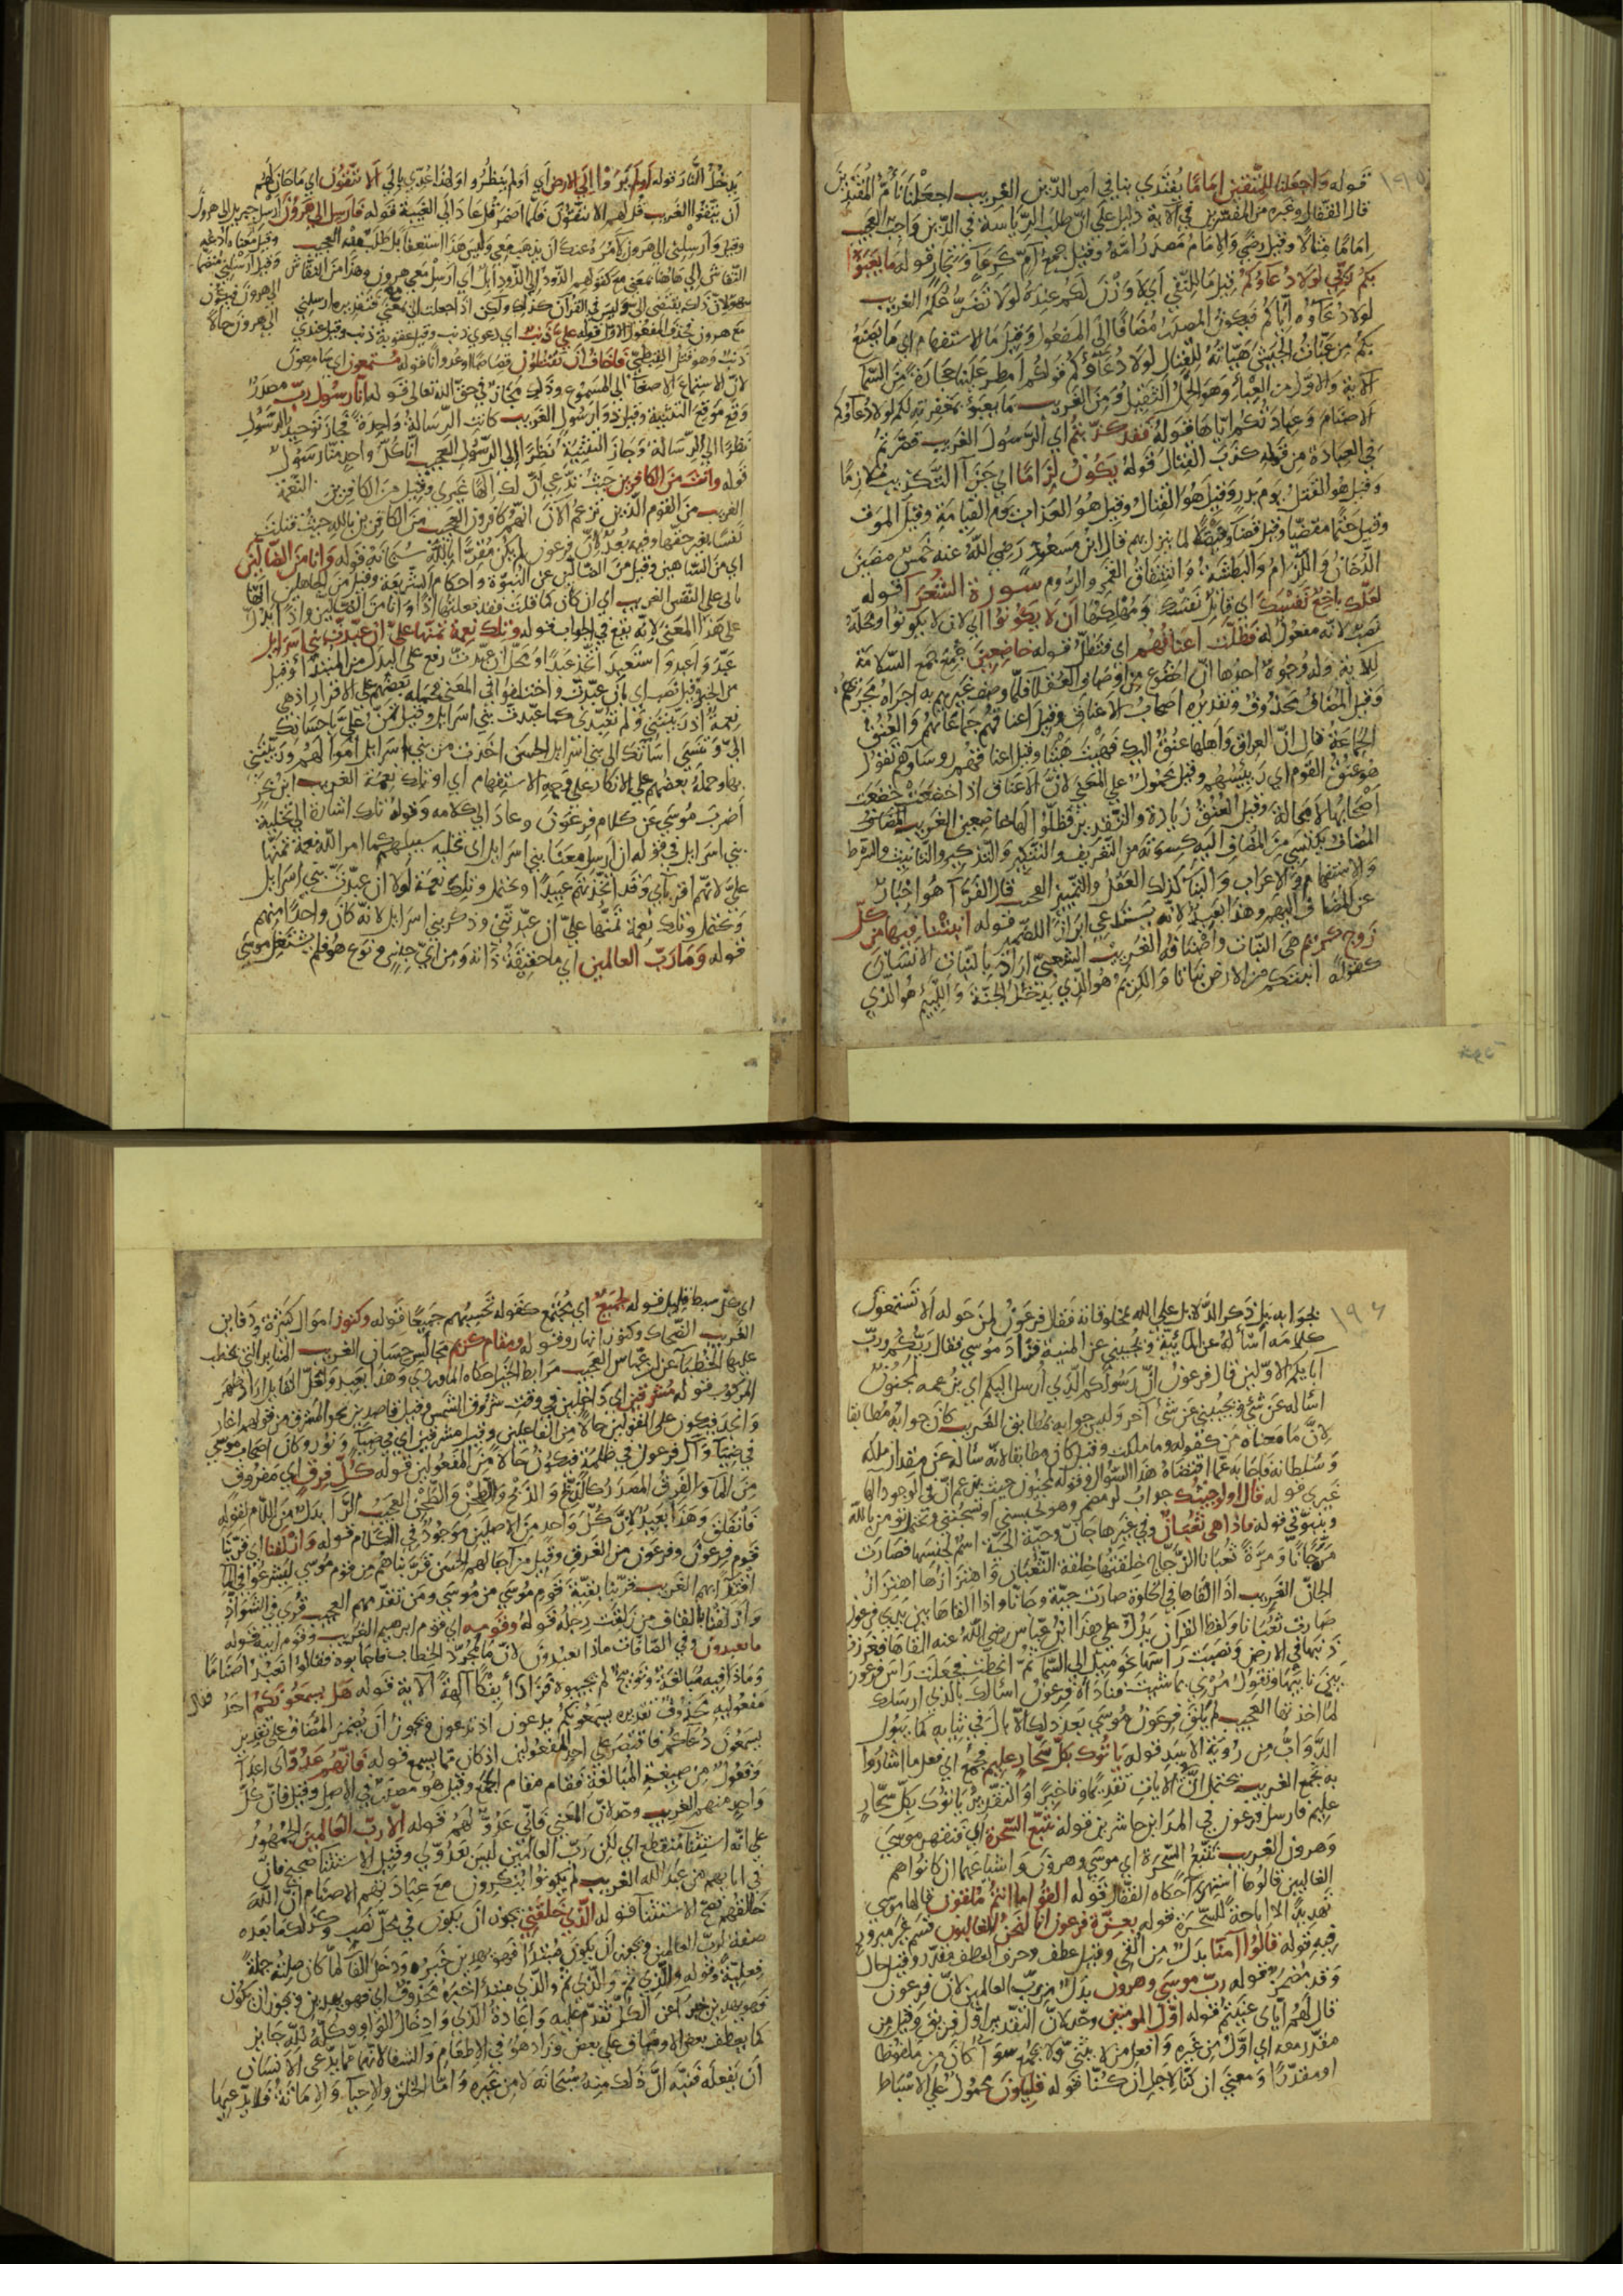 ١٩٥
قوله واجعلنا للمتقين اماما يقتدي بنا في امر الدين الغريب اجعلنا نأتم المقتدين
قال القفال وغيره من المفسرين في الآية دليل على ان طلب الرياسة في الدين واجب العجيب
اماما مثالا وقيل رضي والامام مصدر امه وقيل جمع آم ككريم وتجار قوله ما يعبؤا
بكم ربي لولا دعاؤكم قيل ما للنفي اي لا وزن لكم عنده لولا تضرعكم الغريب
لولا دعاؤه اياكم فيكون المصدر مضافا الى المفعول وقيل ما للاستفهام اي ما يصنع
بكم من عبّات الجيش هيأته للقتال لولا دعاؤكم قولكم امطر علينا حجارة من السما
الآية والاول من العبأ وهو الحمل الثقيل ومن الغريب ما يعبؤ بمغفرته لكم لولا دعاؤكم
الاصنام وعبادتكم اياها قوله فقد كذبتم اي الرسول الغريب قصرتم
في العبادة من قولهم كذب القتال قوله يكون لزاما اي جزآ التكذيب ملازما
وقيل هو القتل يوم بدر وقيل هو القتال وقيل هو العذاب يوم القيامة وقيل الموت
وقيل حتما مقضيا وقيل قضآ وفيصلا لما ينزل بهم قال ابن مسعود رضي الله عنه خمس مضين
الدخان واللزام والبطشة وانشقاق القمر والروم سورة الشعرآ قوله
لعلك باخع نفسك اي قاتل نفسك ومهلكها ان لا يكونوا اي لان لا يكونوا ومحله
نصب لانه مفعول له فظلت اعناقهم اي فتظل قوله خاضعين جمع جمع السلامة
للآية وله وجوه احدها ان الخضوع من اوصاف العقلا فلما وصف غيرهم به اجراه مجراهم
وقيل المضاف محذوف وتقديره اصحاب الاعناق وقيل اعناقهم جماعاتهم والعنق
الجماعة قال ان العراق واهلها عنق اليك فهيت هيتا وقيل اعناقهم روساوهم تقول
هو عنق القوم اي رئيسهم وقيل محمول على المعنى لان الاعناق اذا خضعت خضعت
اصحابها لا محالة وقيل العنق زيادة والتقدير فظلوا لها خاضعين الغريب المضاف
المضاف يكتسي من المضاف اليه كسوته من التعريف والتنكير والتذكير والتانيث والشرط
والاستفهام والاعراب والبنآ كذلك العقل والتمييز العجيب قال الفرآ هو اخبار
عن المضاف اليهم وهذا بعيد لانه يستدعي ابراز الضمير قوله انبتنا فيها من كل
زوج كريم هي النبات واصنافه الغريب الشعبي اراد بالنبات الانسان
كقوله انبتكم من الارض نباتا والكريم هو الذي يدخل الجنة واللئيم هو الذي
يدخل النار قوله اولم يروا الى الارض اي اولم ينظروا ولهذا عدي بالى الا تتقون اي ما حان لهم
ان يتقوا الغريب قل لهم الا تتقون فلما اضمر قل عاد الى الغيبة قوله فارسل الى هرون ارسل جبريل الى هرون
وقيل وارسلني الى هرون لآمره عنك ان يذهب معي وليس هذا استعفآ بل طلب معونة العجيب
النقاش الى هاهنا بمعنى مع كقولهم الذود الى الذود ابل اي ارسل معي هرون وهذا من النقاش
سهو لان ذلك يقتضي
مع هرون فحذف المفعول الاول قوله علي ذنب اي دعوى ذنب وقيل عقوبة ذنب وقيل عندي
ذنب وهو قتل القبطي فاخاف ان يقتلون قصاصا وعدوانا قوله مستمعون اي سامعون
لان الاستماع الاصغآ الى المسموع وذلك مجاز في حق الله تعالى قوله انا رسول رب مصدر
وقع موقع التثنية وقيل ذوا رسول الغريب كانت الرسالة واحدة فجاز توحيد الرسول
نظرا الى الرسالة وجاز التثنية نظرا الى الرسول العجيب انا كل واحد منا رسول
قوله وانت من الكافرين حيث تدعي ان لك الها غيري وقيل من الكافرين النعمة
الغريب من القوم الذين تزعم الآن انهم كافرون العجيب من الكافرين بالله حيث قتلت
نفسا بغير حقها وفيه بعد لان فرعون لم يكن مقرا بالله سبحانه قوله وانا من الضالين
اي من الناسين وقيل من الضالين عن النبوة واحكام الشريعة وقيل من الجاهلين انها
تاتي على النفس الغريب اي ان كان كما قلت فقد فعلتها اذا وانا من الضالين واذا يدل
على هذا المعنى لانه يقع في الجواب قوله وتلك نعمة تمنها علي ان عبدت بني اسرايل
عبد واعبد واستعبد اتخذ عبدا ومحل ان عبدت رفع على البدل من المبتدا وقيل
من الخبر وقيل نصب اي بان عبدت واختلفوا في المعنى فحمله بعضهم على الاقرار اي هي
نعمة اذ ربيتني ولم تعبدني كما عبدت بني اسرايل وقيل تمن علي باحسانك
الي وتنسى اساتك الى بني اسرايل الحسن اخذت من بني اسرايل اموالهم وربيتني
بها وحمله بعضهم على الانكار على وجه الاستفهام اي اوتلك نعمة الغريب ابن بحر
اضرب موسى عن كلام فرعون وعاد الى كلامه وقوله تلك اشارة الى تخلية
بني اسرايل في قوله ان ارسل معنا بني اسرايل اي تخليه سبيلهم كما امر الله نعمة تمنها
علي لانهم اقربآي وقد اتخذتهم عبيدا ويحتمل وتلك نعمة لولا ان عبدت بني اسرايل
ويحتمل وتلك نعمة تمنها علي ان عبدتني وذكر بني اسرايل لانه كان واحدا منهم
قوله وما رب العالمين اي ما حقيقة ذاته ومن اي جنس ونوع هو فلم يشتغل موسى
١٩٦
بجوابه بل ذكر الدلايل على الله بمخلوقاته فقال فرعون لمن حوله الا تستمعون
كلامه أسأله عن المائية ويجيبني عن المنية فزاد موسى فقال ربكم ورب
آبايكم الاولين قال فرعون ان رسولكم الذي ارسل اليكم اي بزعمه لمجنون
اسأله عن شئ ويجيبني عن شئ آخر وليس جوابه بمطابق الغريب كان جوابه مطابقا
لان ما معناه من كقوله وما ملكت وقيل كان مطابقا لانه ساله عن مقدار ملكه
وسلطانه فاجابه عما اقتضاه هذا السؤال وقوله لمجنون حيث يزعم ان في الوجود الها
غيري قوله قال اولو جئتك جواب
وبنبوتي قوله فاذا هي ثعبان وفي غيرها جان وحية الحية اسم لجنسها فصارت
مرة جانا ومرة ثعبانا الزجاج خلقتها خلقة الثعبان واهتزازها اهتزاز
الجان الغريب اذا القاها في الخلوة صارت حية وجانا واذا القاها بين يدي فرعون
صارت ثعبانا ولفظ القرآن يدل على هذا ابن عباس رضي الله عنه القاها فغرزت
ذنبها في الارض ونصبت راسها نحو ميل الى السمآ ثم انحطت فجعلت راس فرعون
بين نابيها وتقول مرني بما شئت فناداه فرعون اسألك بالذي ارسلك
لما اخذتها العجيب لم يلق فرعون موسى بعد ذلك الا بال في ثيابه كما يبول
الدواب من رؤية الاسد قوله ياتوك بكل سحار عليم فجمع اي فعل ما اشاروا
به فجمع الغريب يحتمل ان في الآيات تقديما وتاخيرا والتقدير ياتوك بكل سحار
عليم فارسل فرعون في المداين حاشرين قوله نتبع السحرة اي فنقهر موسى
وهرون الغريب نتبع السحرة اي موسى وهرون واشياعهما ان كانوا هم
الغالبين قالوها استهزآ حكاه القفال قوله القوا ما انتم ملقون قالها موسى
تهديدا لا اباحة للسحرة قوله بعزة فرعون انا لنحن الغالبون قسم غير مبرور
فيه قوله قالوا آمنا بدل من القي وقيل عطف وحرف العطف مقدر وقيل حال
وقد مضمر قوله رب موسى وهرون بدل من رب العالمين لان فرعون
قال لهم اياي عنيتم قوله اول المومنين وحد لان التقدير اول فريق وقيل من
مقدر معه اي اول من غيره وافعل من لا يثنى ولا يجمع سوآ كان من ملفوظا
او مقدرا ومعنى ان كنا لاجل ان كنا قوله قليلون محمول على الاسباط
اي كل سبط قليل قوله لجميع اي مجتمع كقوله تحسبهم جميعا قوله وكنوز اموال كثيرة ودفاين
الغريب الضحاك وكنوز انهار وقوله ومقام كريم مجالس حسان الغريب المنابر التي يخطب
عليها الخطبآ عن ابن عباس العجيب مرابط الخيل حكاه الماوردي وهذا بعيد ولعل القايل اراد ظهر
المركوب قوله مشرقين اي داخلين في وقت شروق الشمس وقيل قاصدين نحو المشرق من قولهم اغار
وانجد فيكون على القولين حالا من الفاعلين وقيل مشرقين اي في ضيآ ونور وكان اصحاب موسى
في ضيآ وآل فرعون في ظلمة فيكون حالا من المفعولين قوله كل فرق اي مفروق
من المآ والفرق المصدر كالذبح والذبح والطحن والطحن العجيب الرآ بدل من اللام لقوله
فانفلق وهذا بعيد لان كل واحد من الاصلين موجود في الكلام قوله وازلفنا اي قربنا
قوم فرعون وفرعون من الغرق وقيل من آجالهم الحسن قربناهم من قوم موسى ليشرعوا في المآ
اقتدآ بهم الغريب قربنا بقية قوم موسى من موسى ومن تقدمهم العجيب قرئ في الشواذ
وازلقنا بالقاف من زلقت رجله قوله وقومه اي قوم ابرهيم الغريب وقوم ابيه قوله
ما تعبدون وفي الصافات ماذا تعبدون لان ما لمجرد الخطاب فاجابوه فقالوا نعبد اصناما
وماذا فيه مبالغة وتوبيخ لم يجيبوه فزاد أئفكا آلهة الآية قوله هل يسمعونكم احد
مفعوليه محذوف تقديره يسمعونكم يدعون اذ تدعون ويجوز ان يضمر المضاف على تقدير
يسمعون دعآكم فاقتصر على احد المفعولين اذ كان مما يسمع قوله فانهم عدو لي اي اعدآ
وفعول من صيغة المبالغة فقام مقام الجمع وقيل هو مصدر في الاصل وقيل فان كل
واحد منهم الغريب وحد لان المعنى فاني عدو لهم قوله الا رب العالمين الجمهور
على انه استثنآ منقطع اي لكن رب العالمين ليس بعدو لي وقيل الاستثنآ صحيح فان
في آبايهم من عبد الله الغريب لم يكونوا ينكرون مع عبادتهم الاصنام ان الله
خالقهم فصح الاستثنآ قوله الذي خلقني يجوز ان يكون في محل نصب وكذلك ما بعده
صفة لرب العالمين ويجوز ان يكون مبتدا فهو يهدين خبره ودخل الفآ لما كان صلته جملة
فعلية وقوله والذي ثم والذي ثم والذي مبتدا خبره محذوف اي فهو يهدين ويجوز ان يكون
فهو يهدين خبرا عن الكل تقدم عليه واعادة الذي وادخال الواو وكله لله جايز
كما يعطف بعض الاوصاف على بعض وزاد هو في الاطعام والشفا لانهما مما يدعي الانسان
ان يفعله فنبه ان ذلك منه سبحانه لا من غيره واما الخلق والاحيآ والاماتة فلا يدعيها